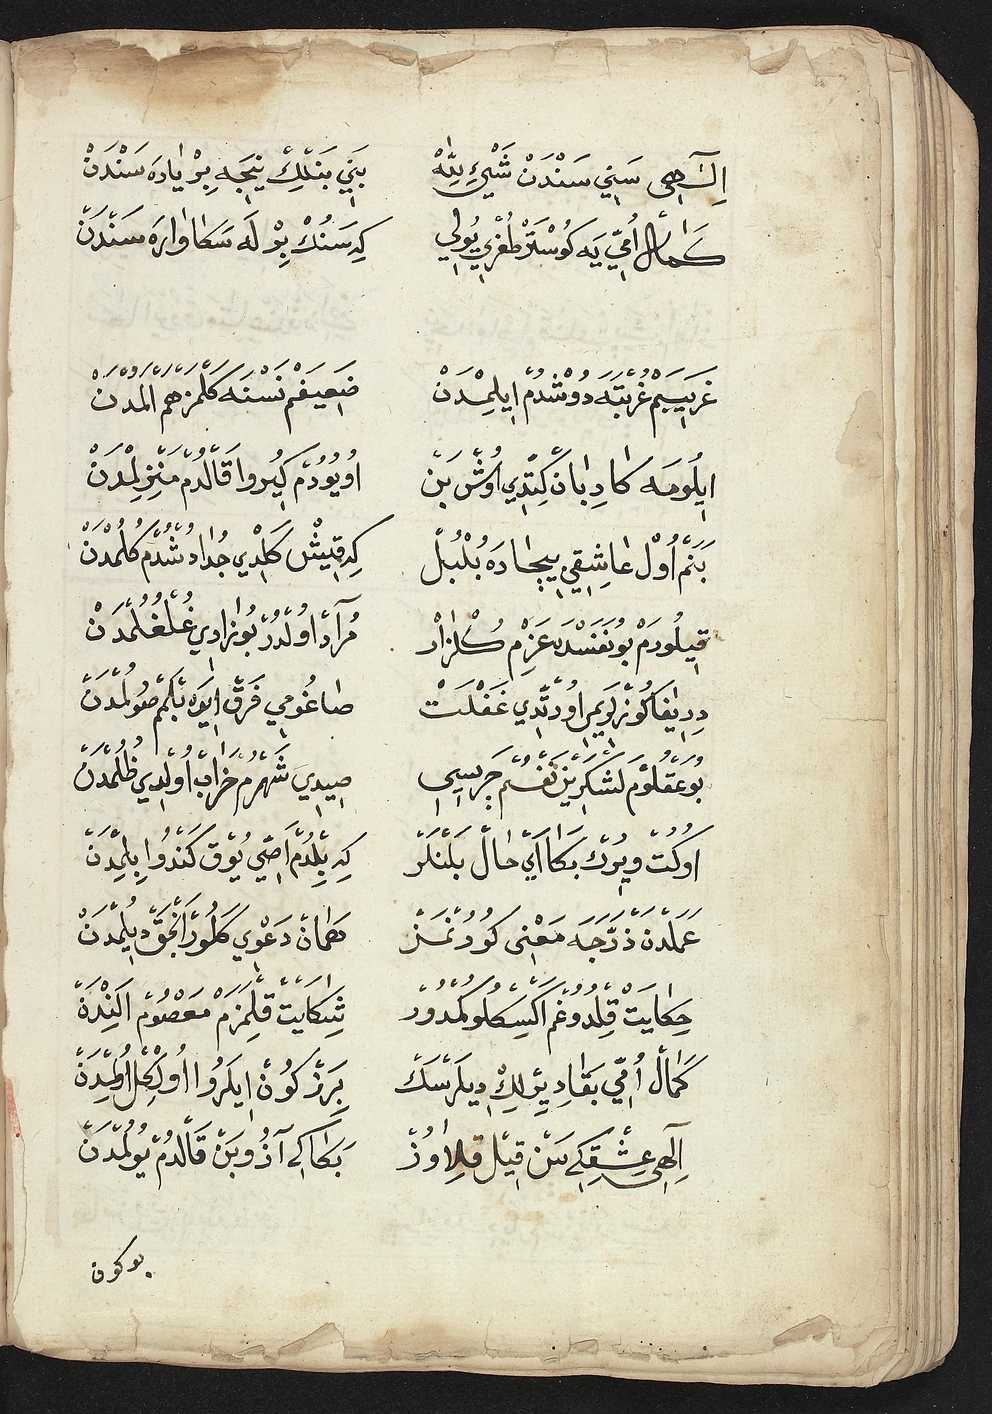 اِلٰٓهِی سَنِي سَنْدَنْ شَيْئِ لِلّٰهْ بَنِي بَنْلِكْ نِيجَه بِرْ يَادَه سَنْدَنْ
كَمَالْ اُمِّي يَه كُوسْتَرْ طُغْرِي يُولِي كِه سَنُكْ بِرْلَه سَكَا وَارَه سَنْدَنْ
غَرِيبِيمْ غُرْبَتَه دُوشْدُمْ اِيلِمْدَنْ ضَعِيفَمْ نَسْنَه كَلْمَزْ هِمْ اَلُمْدَنْ
اِيلُومَه كَادِبَانْ كِتْدِي اُوشْ بَنْ اُويُودُمْ كِيرُو قَالْدُمْ مَنْزِلِمْدَنْ
بَنَمْ اُولْ عَاشِقِي بِيچَارَه بُلْبُلْ كِه قِيشْ كَلْدِي جُدَا دُشْدُمْ كُلُمْدَنْ
قِيلُورَمْ بُو نَفَسْدَه عَزْمِ كُلْزَارْ مُرَادْ اُولْدُرْ بُو زَارِي غُلْغُلُمْدَنْ
دِرِيغَا كُوزْلَرِيمِي اُورْتْدِي غَفْلَتْ صَاغُومِي فَرْقْ اِيدَه بَكَمْ صُولُمْدَنْ
بُو عَقْلُومْ لَشْكَرِينْ نَفْسُمْ چَرِيسِي صِيدِي شَهْرُمْ خَرَابْ اُولْدِي ظُلُمْدَنْ
اُوكُتْ وِيرُرْكْ بَكَا اَيْ حَالْ بِلَنْلَرْ كِه بِلْدُمْ اَصِّي يُوقْ كَنْدُو بِلِمْدَنْ
عَمَلْدَنْ ذَرَّجَه مَعْنِی كُورُنْمَزْ هَمَانْ دَعْوِي كَلُورْ اَنْجَقْ دِيلُمْدَنْ
حِكَايَتْ قِلْدُوغُمْ اَكْسِكْلُوكُمْدُورْ شِكَايَتْ قِلْمَزَمْ مَعْصُومْ اَلِنْدَنْ
كَمَالْ اُمِّي بَقَا دِيرْلِكْ دِيلَرْسَكْ بِرَزْ كُونْ اِيلَرُو اُولْكِلْ اُولُمْدَنْ
اِلٰهِی عِشْقِكِي سَنْ قِيلْ قِلَاوُزْ بَكَا كِه آزُوبَنْ قَالْدُمْ يُولُمْدَنْ
بو كون